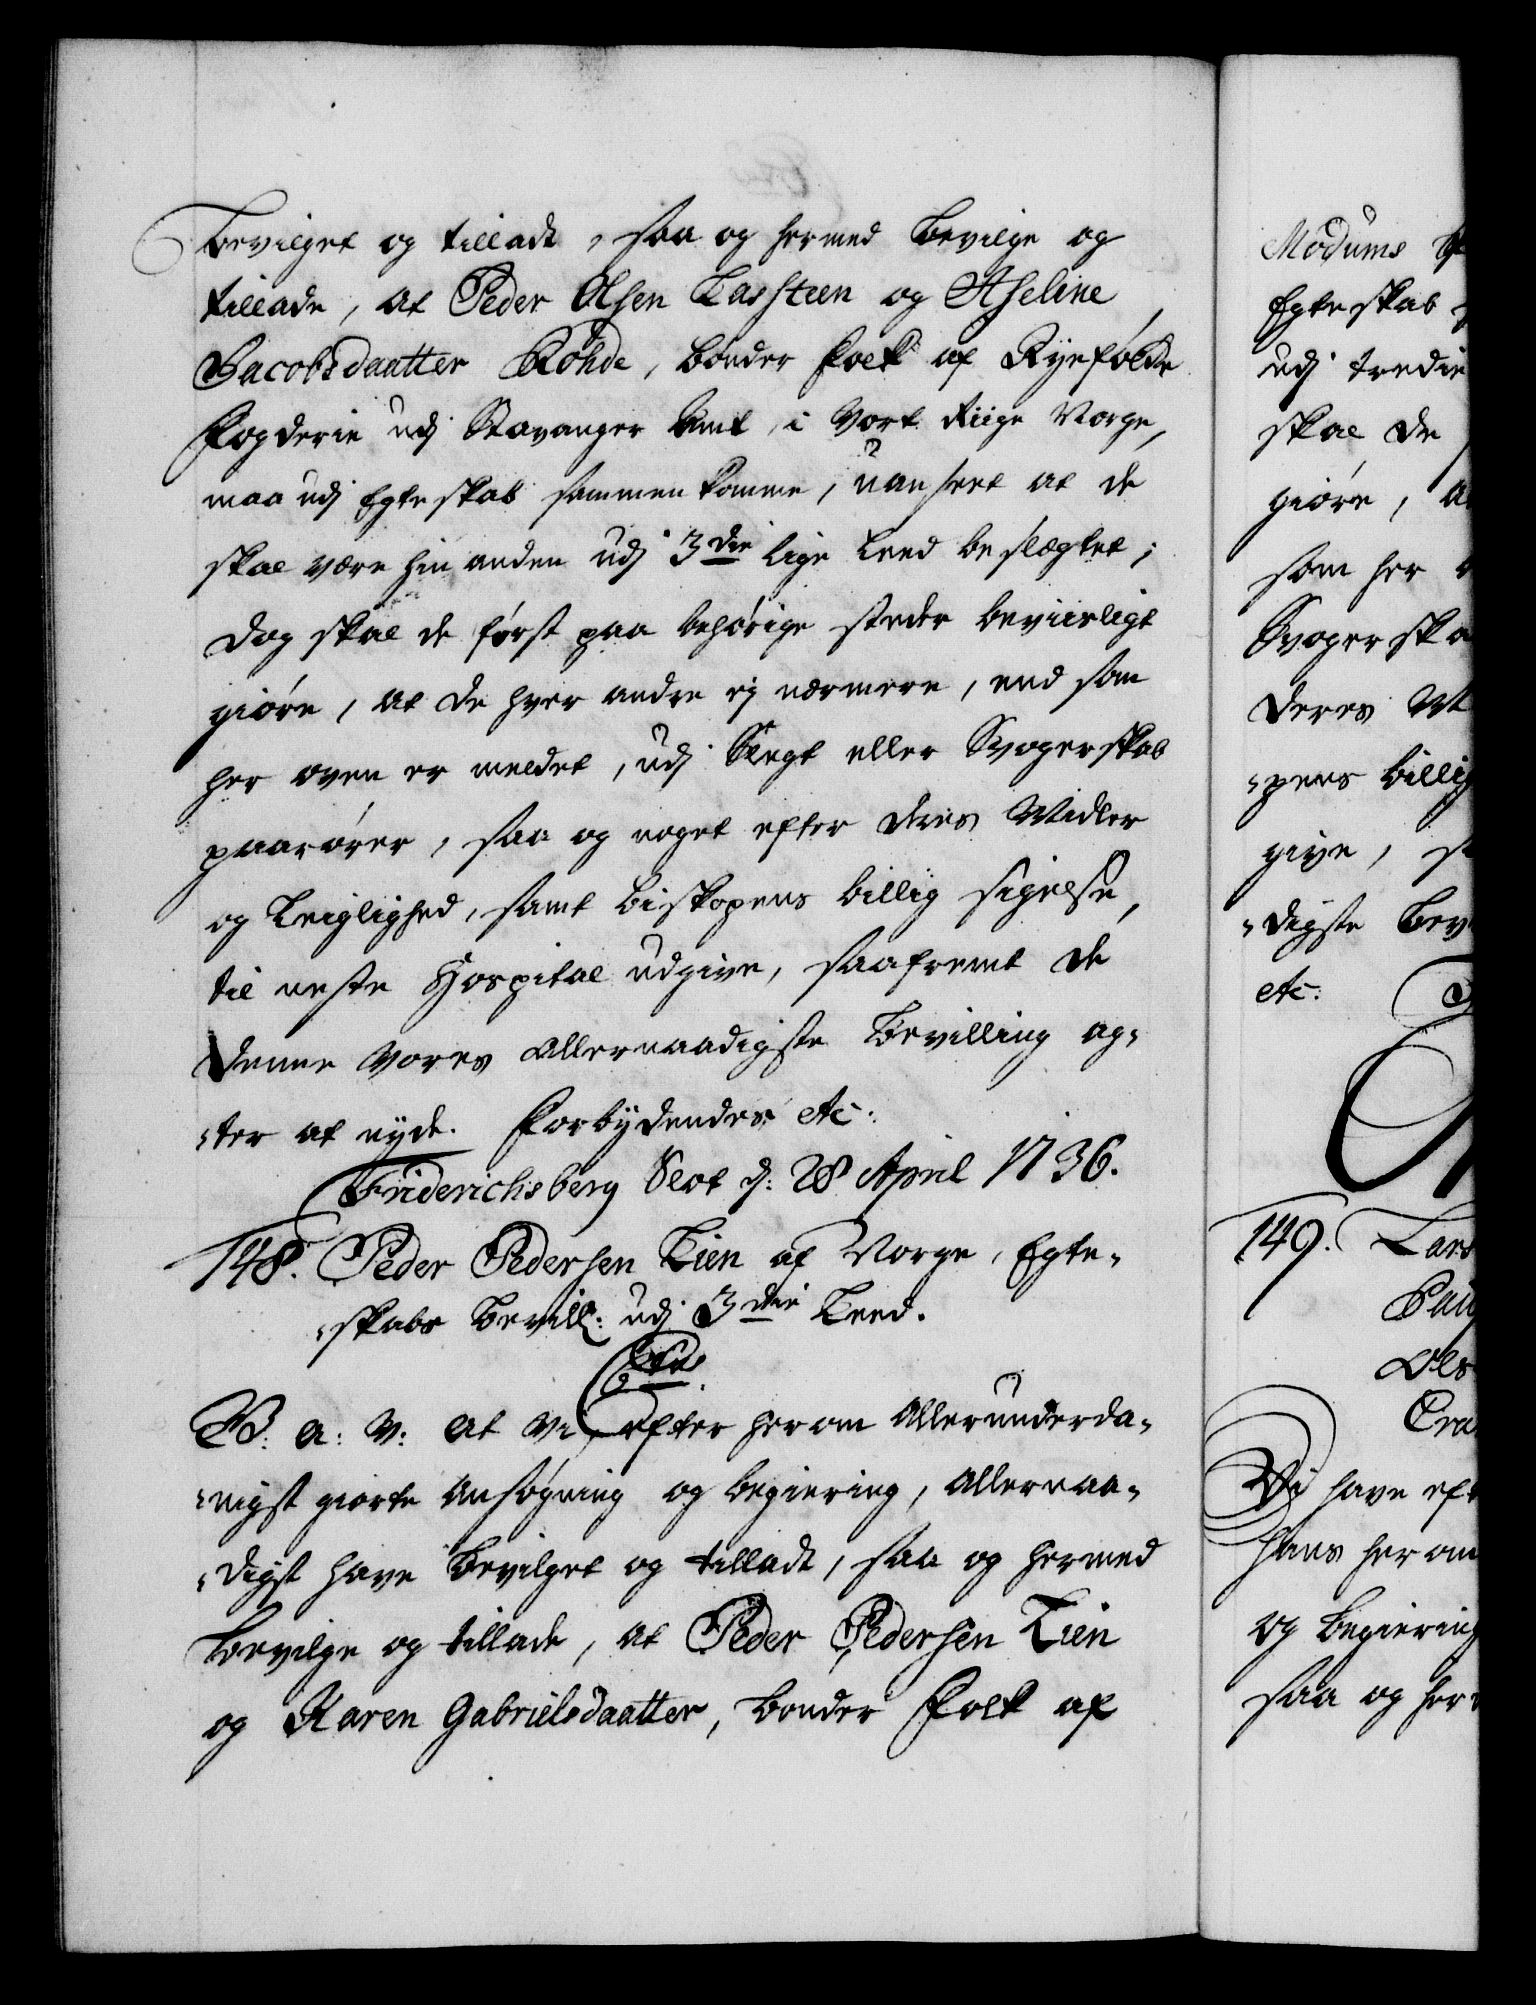 bevilget og tilladt, saa og hermed bevilge og
tillade, at Peder Olsen Lassteen og Aseline
Jacobsdaatter Rohde, bønder folk af Ryefølcke
Fogderie udj Stavanger Amt, i vort Riige Norge,
maa udj Egteskab sammen komme, uanseet at de
skal være hin anden udj 3die lige Leed beslægtet;
dog skal de først paa behørige steder beviisligt
giøre, at de hver andre ej nærmere, end som
her oven er meldet, udj Slegt eller Svogerskab
paarører, saa og noget efter deres Midler
og Leiglighed, samt biskopens billig sigelse,
til neste Hospital udgive, saafremt de
denne Vores allernaadigste Bevilling ag-
-ter at nyde. Forbydendes etc:
Friderichsberg Slot d: 28 April 1736.
148. Peder Pedersen Lien af Norge, Egte-
-skabs bevill: udj 3die Leed.
B: A: V: at Vi, efter herom allerunderda-
-nigst giorte ansøgning og begiering, allernaa-
-digst have bevilget og tilladt, saa og hermed
bevilge og tillade, at Peder Pedersen Lien
og Karen Gabrielsdaatter, bønder folk af
Modums
Egteskab
udj tredie
skal de
giøre, a
som her
Svogerska
deres M
-pens billig
give, s
-digste bev
etc:
149. Lars
Ols
Vi have eft
hans herom
og begiering
saa og her